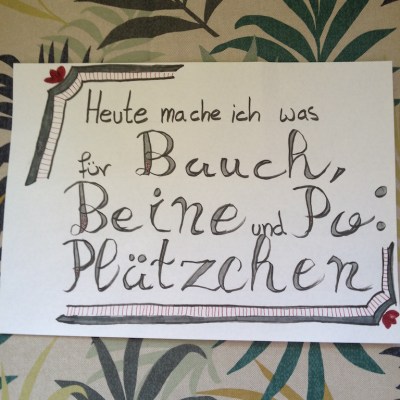 Heute mache ich was
für Bauch,
Beine und Po:
Plätzchen